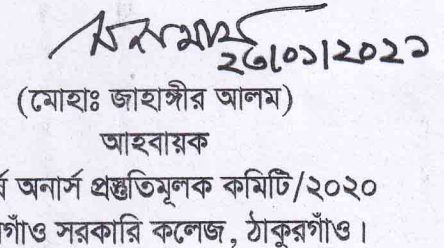 ২৩|০১|২০২১
(মোহাঃ জাহাঙ্গীর আলম)
আহবায়ক
র্ষ অনার্স প্রস্তুতিমূলক কমিটি/২০২০
রগাঁও সরকারি কলেজ, ঠাকুরগাঁও।